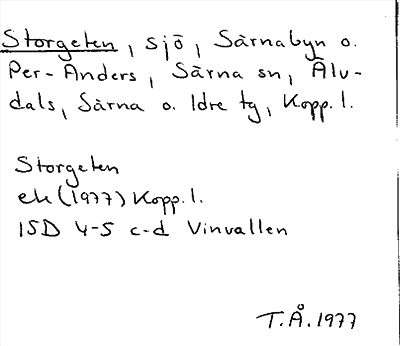 Storgeten, sjö, Särnabyn o.
Per-Anders, Särna sn, Älv-
dals, Särna o. Idre tg, Kopp. l.
Storgeten
ek (1977) Kopp. l.
15D 4-5 c-d Vinvallen
T.Å. 1977